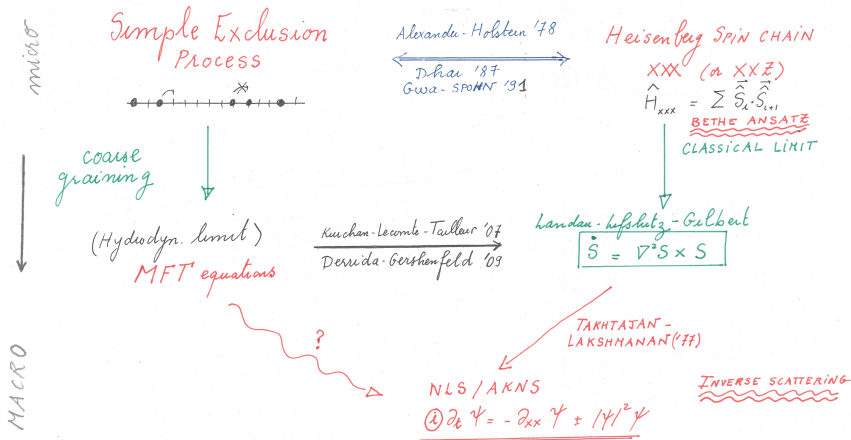 micro
Simple Exclusion
Process
Alexander - Holstein '78
Dhar '87
Gwa - SPOHN '91
Heisenberg SPIN CHAIN
XXX (or XXZ)
Ĥ_xxx = Σ \vec{Ŝ}_i · \vec{Ŝ}_{i+1}
BETHE ANSATZ
CLASSICAL LIMIT
coarse
graining
(Hydrodyn. limit)
MFT equations
Kurchan-Lecomte-Tailleur '07
Derrida-Gershenfeld '09
Landau-Lifshitz-Gilbert
Ṡ = ∇²S × S
?
TAKHTAJAN -
LAKSHMANAN ('77)
MACRO
NLS / AKNS
i ∂_t ψ = - ∂_xx ψ ± |ψ|² ψ
INVERSE SCATTERING